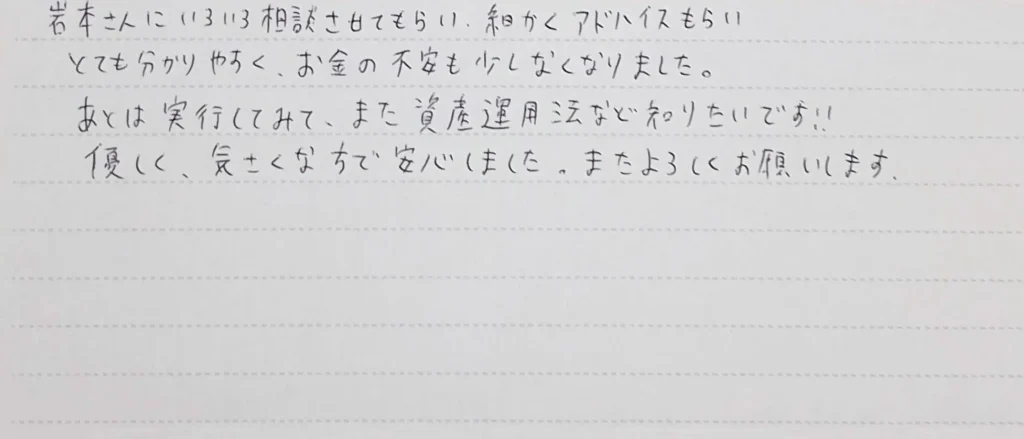 岩本さんにいろいろ相談させてもらい、細かくアドバイスもらい
とても分かりやすく、お金の不安も少しなくなりました。
あとは実行してみて、また資産運用法など知りたいです!!
優しく、気さくな方で安心しました。またよろしくお願いします。